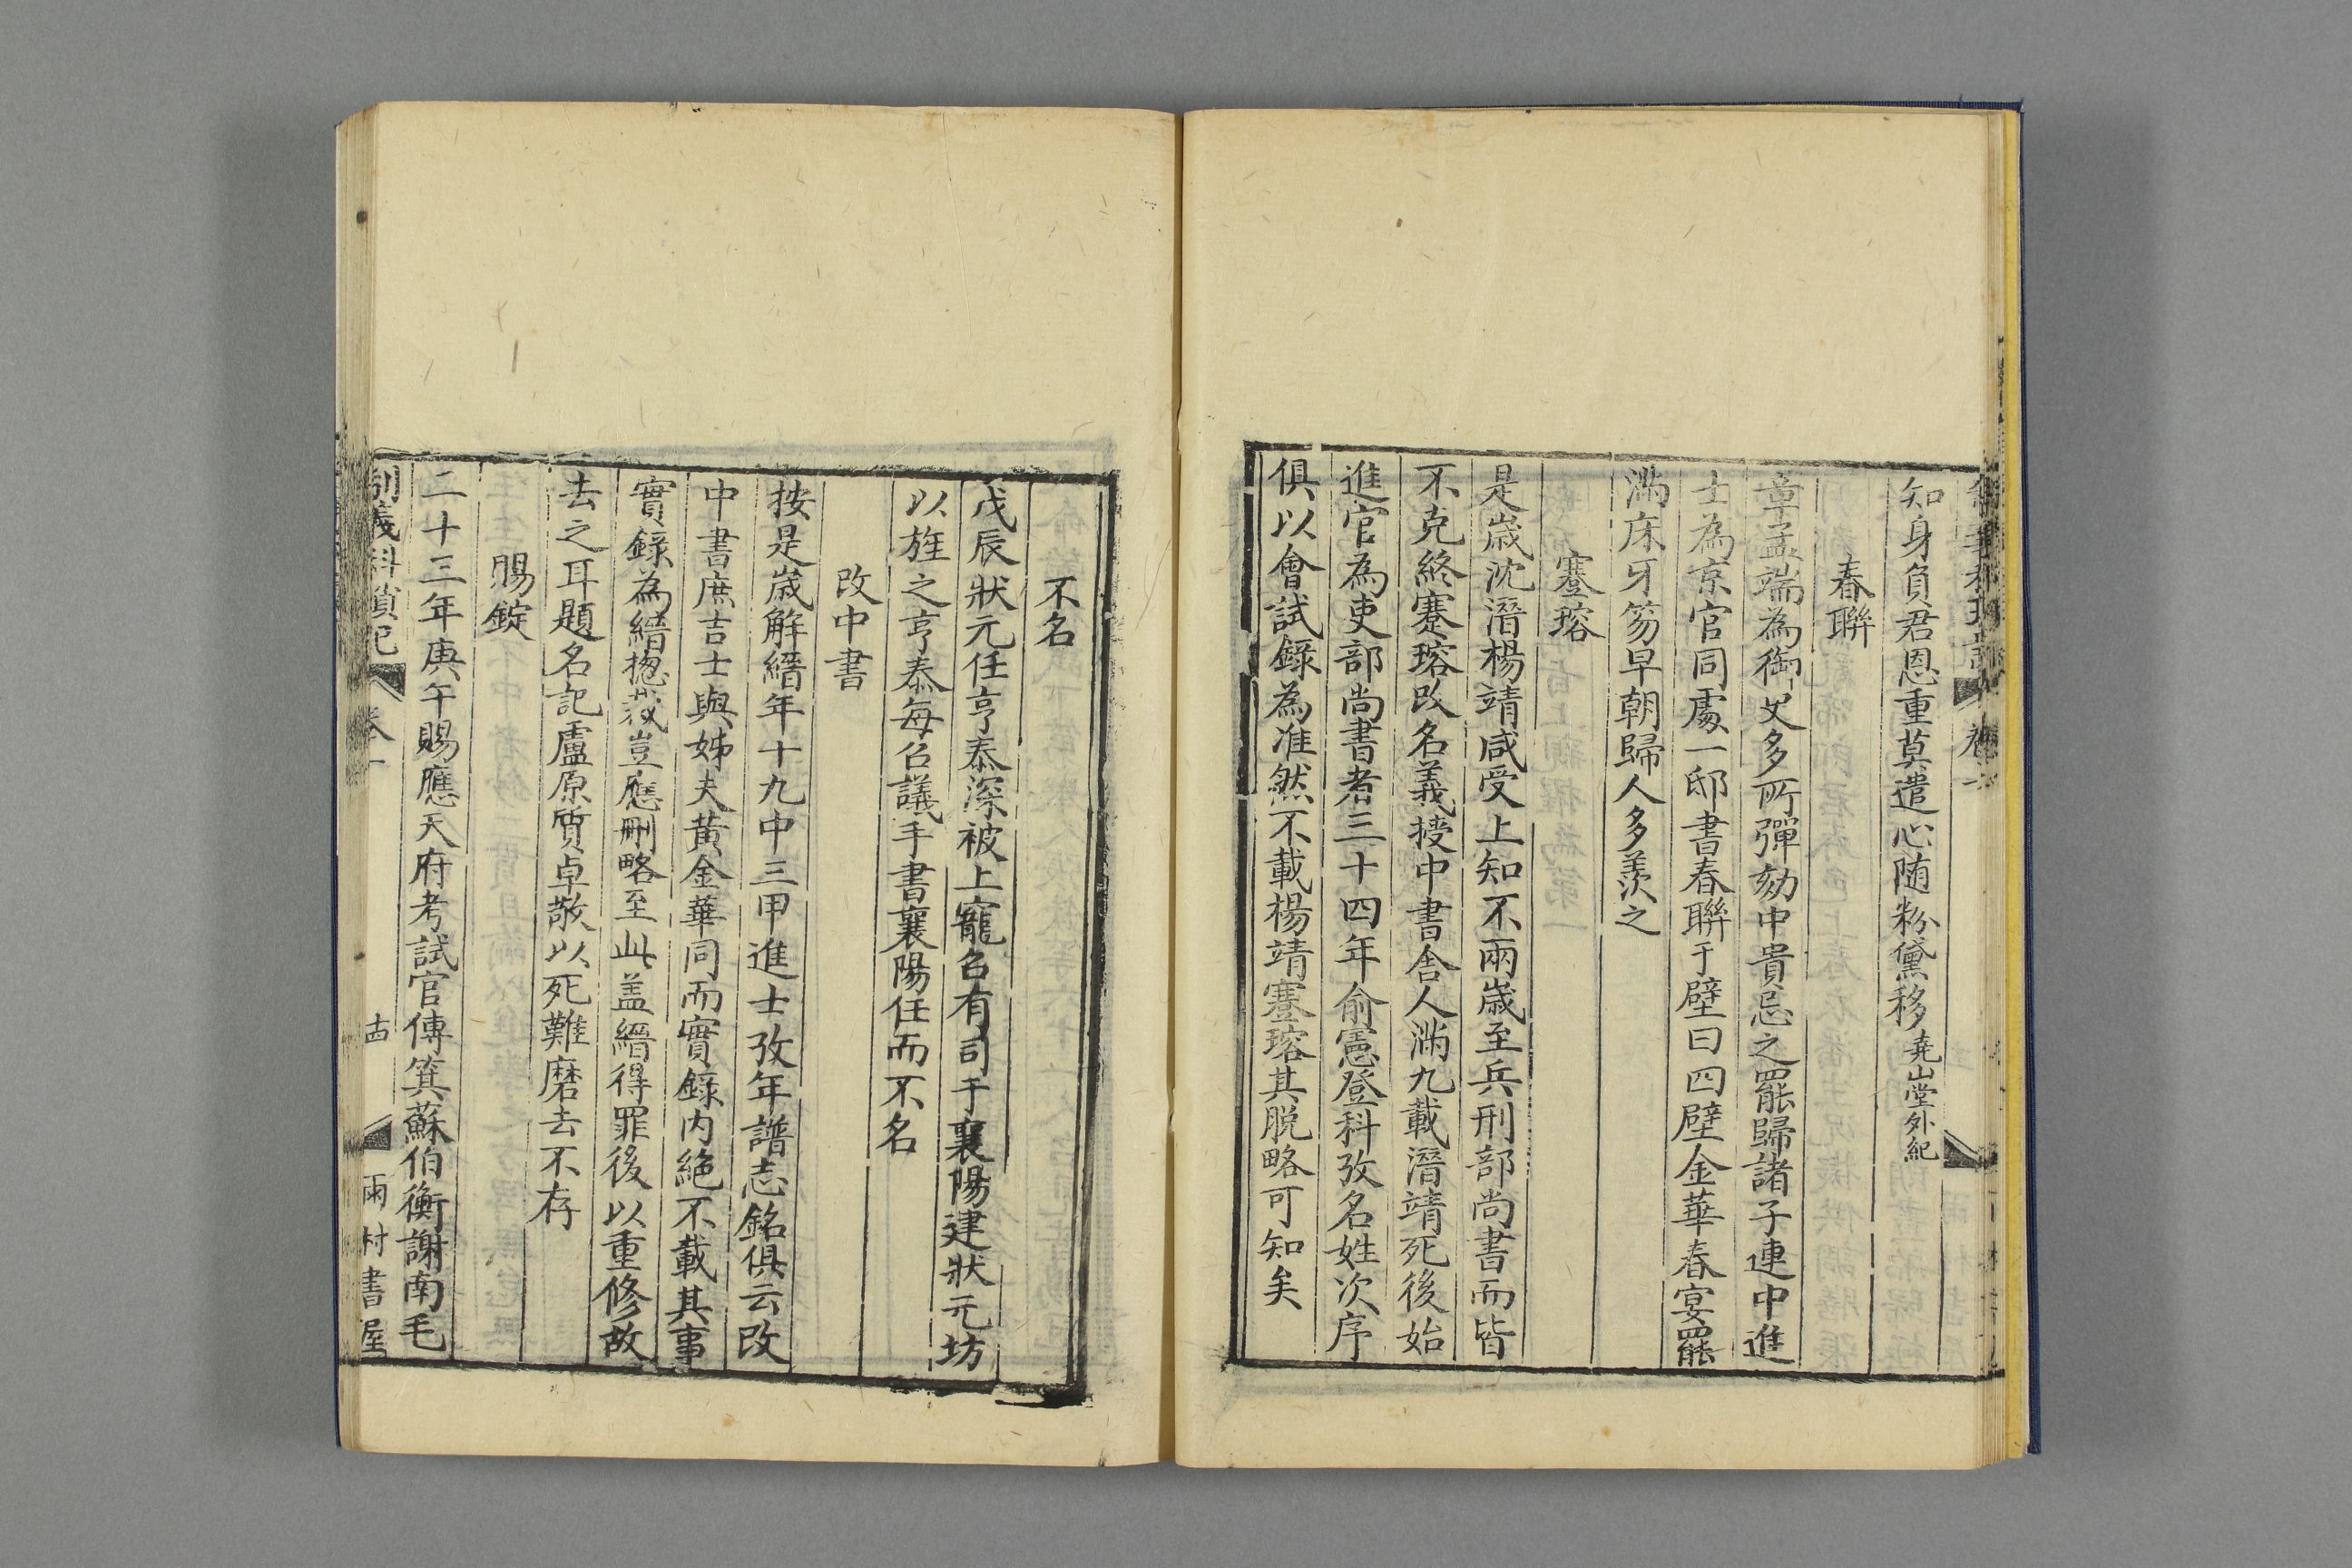 知身負君恩重莫遣心随粉黛移堯山堂外紀
春聯
章孟端為御史多所彈劾中貴忌之罷歸諸子連中進
士為京官同處一邸書春聯于壁曰四壁金華春宴罷
滿床牙笏早朝歸人多羨之
蹇瑢
是歲沈溍楊靖咸受上知不兩歲至兵刑部尚書而皆
不克終蹇瑢改名義授中書舍人滿九載溍靖死後始
進官為吏部尚書者三十四年俞憲登科攷名姓次序
俱以會試錄為准然不載楊靖蹇瑢其脫略可知矣
不名
戊辰狀元任亨泰深被上寵召有司于襄陽建狀元坊
以旌之亨泰每召議手書襄陽任而不名
改中書
按是歲解縉年十九中三甲進士攷年譜志銘俱云改
中書庶吉士與姊夫黃金華同而實錄内絶不載其事
實錄為縉揔裁豈應刪略至此盖縉得罪後以重修故
去之耳題名記盧原質卓敬以死難磨去不存
賜錠
二十三年庚午賜應天府考試官傅箕蘇伯衡謝南毛
制義科瑣記 卷一 十四 兩村書屋